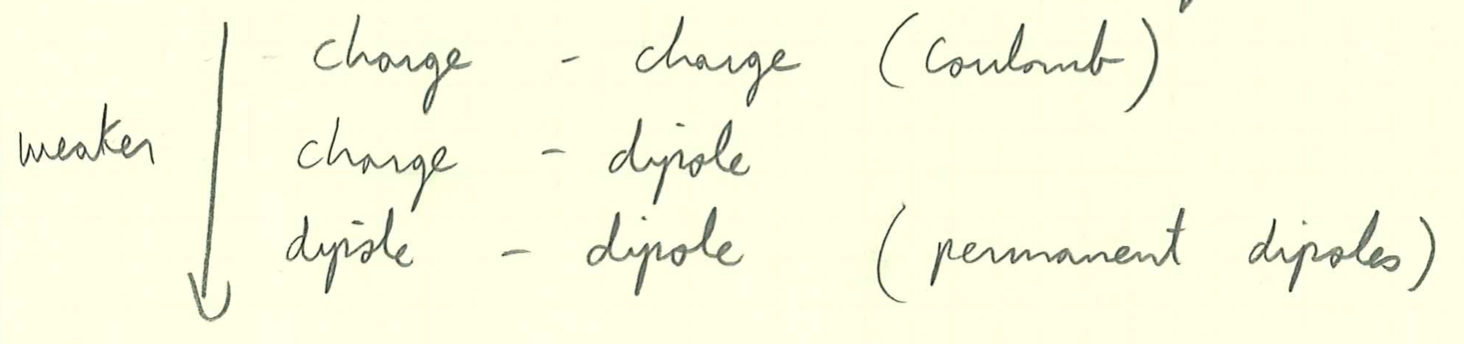 charge - charge (Coulomb)
weaker charge - dipole
dipole - dipole (permanent dipoles)